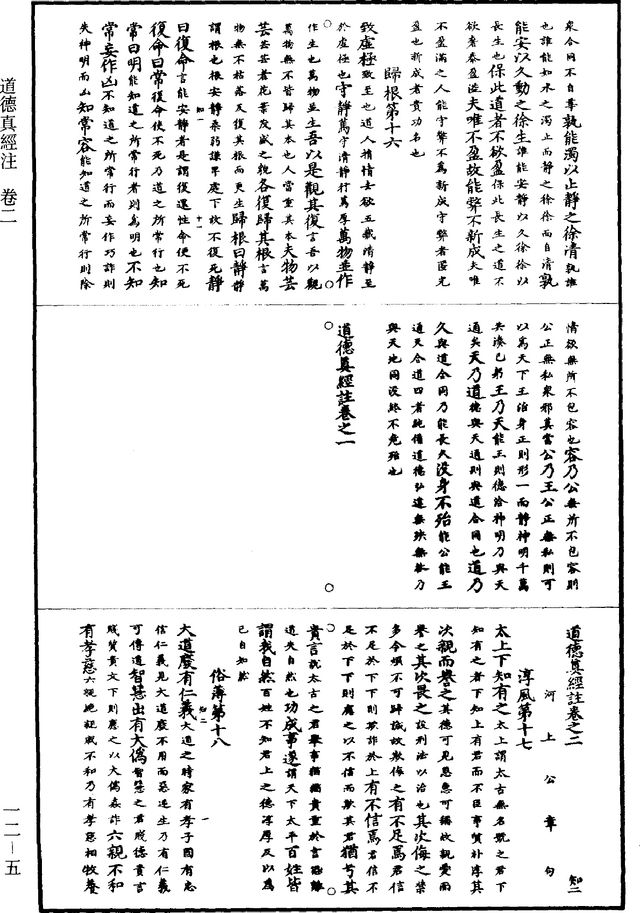 道德真經注 卷二
衆合同不自專孰能濁以止靜之徐清孰誰
也誰能如水之濁止而靜之徐徐而自清孰
能安以久動之徐生誰能安靜以久徐徐以
長生也保此道者不欲盈保此長生之道不
欲奢泰盈溢夫唯不盈故能弊不新成夫唯
不盈滿之人能守弊不為新成守弊者匿光
盈也新成者貴功名也
歸根第十六
致虛極致至也道人捐情去欲五藏清靜至
於虛極也守靜篤守清靜行篤厚萬物並作
作生也萬物並生吾以是觀其復言吾以觀
萬物無不皆歸其本也人當重其本夫物芸
芸芸芸者花葉茂盛之貌各復歸其根言萬
物無不枯落及復其根而更生歸根曰靜靜
謂根也根安靜柔弱謙卑處下故不復死靜
知一 十一
曰復命言能安靜者是謂復還性命使不死
復命曰常復命使不死乃道之所常行也知
常曰明能知道之所常行者則為明也不知
常妄作凶不知道之所常行而妄作巧詐則
失神明而凶知常容能知道之所常行則除
情欲無所不包容也容乃公無所不包容則
公正無私衆邪莫當公乃王公正無私則可
以為天下王治身正則形一而靜神明千萬
共湊已躬王乃天能王則德洽神明乃與天
通矣天乃道德與天通則與道合同也道乃
久與道合同乃能長久沒身不殆能公能王
通天合道四者純備道德弘遠無殃無咎乃
與天地同沒終不危殆也
道德真經註卷之一
道德真經註卷之二 知二
河上公章句
淳風第十七
太上下知有之太上謂太古無名號之君下
知有之者下知上有君而不臣事質朴淳其
次親而譽之其德可見恩惠可稱故親愛而
譽之其次畏之設刑法以治也其次侮之禁
多令煩不可歸誠故欺侮之有不足焉君信
不足於下下則欺詐於上有不信焉君信不
足於下下則應之以不信而欺其君猶兮其
貴言說太古之君舉事猶猶貴重於言恐離
道失自然也功成事遂謂天下太平百姓皆
謂我自然百姓不知君上之德淳厚反以為
己自知然
俗薄第十八
知二 一
大道廢有仁義大道之時家有孝子國有忠
信仁義見大道廢不用而惡逆生乃有仁義
可傳道智慧出有大偽智慧之君賤德貴言
賤質貴文下則應之以大偽姦詐六親不和
有孝慈六親絕疏戚不和乃有孝慈相牧養
一二—五